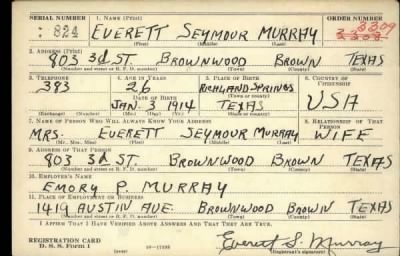 SERIAL NUMBER 1. NAME (Print) ORDER NUMBER
824 EVERETT SEYMOUR MURRAY 3309
(First) (Middle) (Last) 3308
2. ADDRESS (Print)
803 3d ST. BROWNWOOD BROWN TEXAS
(Number and street or R. F. D. number) (Town) (County) (State)
3. TELEPHONE 4. AGE IN YEARS 5. PLACE OF BIRTH 6. COUNTRY OF CITIZENSHIP
393 26 RICHLAND SPRINGS
DATE OF BIRTH (Town or county)
JAN 3 1914 TEXAS USA
(Exchange) (Number) (Mo.) (Day) (Yr.) (State or country)
7. NAME OF PERSON WHO WILL ALWAYS KNOW YOUR ADDRESS 8. RELATIONSHIP OF THAT PERSON
MRS. EVERETT SEYMOUR MURRAY WIFE
(Mr., Mrs., Miss) (First) (Middle) (Last)
9. ADDRESS OF THAT PERSON
803 3d ST. BROWNWOOD BROWN TEXAS
(Number and street or R. F. D. number) (Town) (County) (State)
10. EMPLOYER'S NAME
EMORY P. MURRAY
11. PLACE OF EMPLOYMENT OR BUSINESS
1419 AUSTIN AVE. BROWNWOOD BROWN TEXAS
(Number and street or R. F. D. number) (Town) (County) (State)
I AFFIRM THAT I HAVE VERIFIED ABOVE ANSWERS AND THAT THEY ARE TRUE.
REGISTRATION CARD
D. S. S. Form 1 (over) Everett S. Murray
(Registrant's signature)